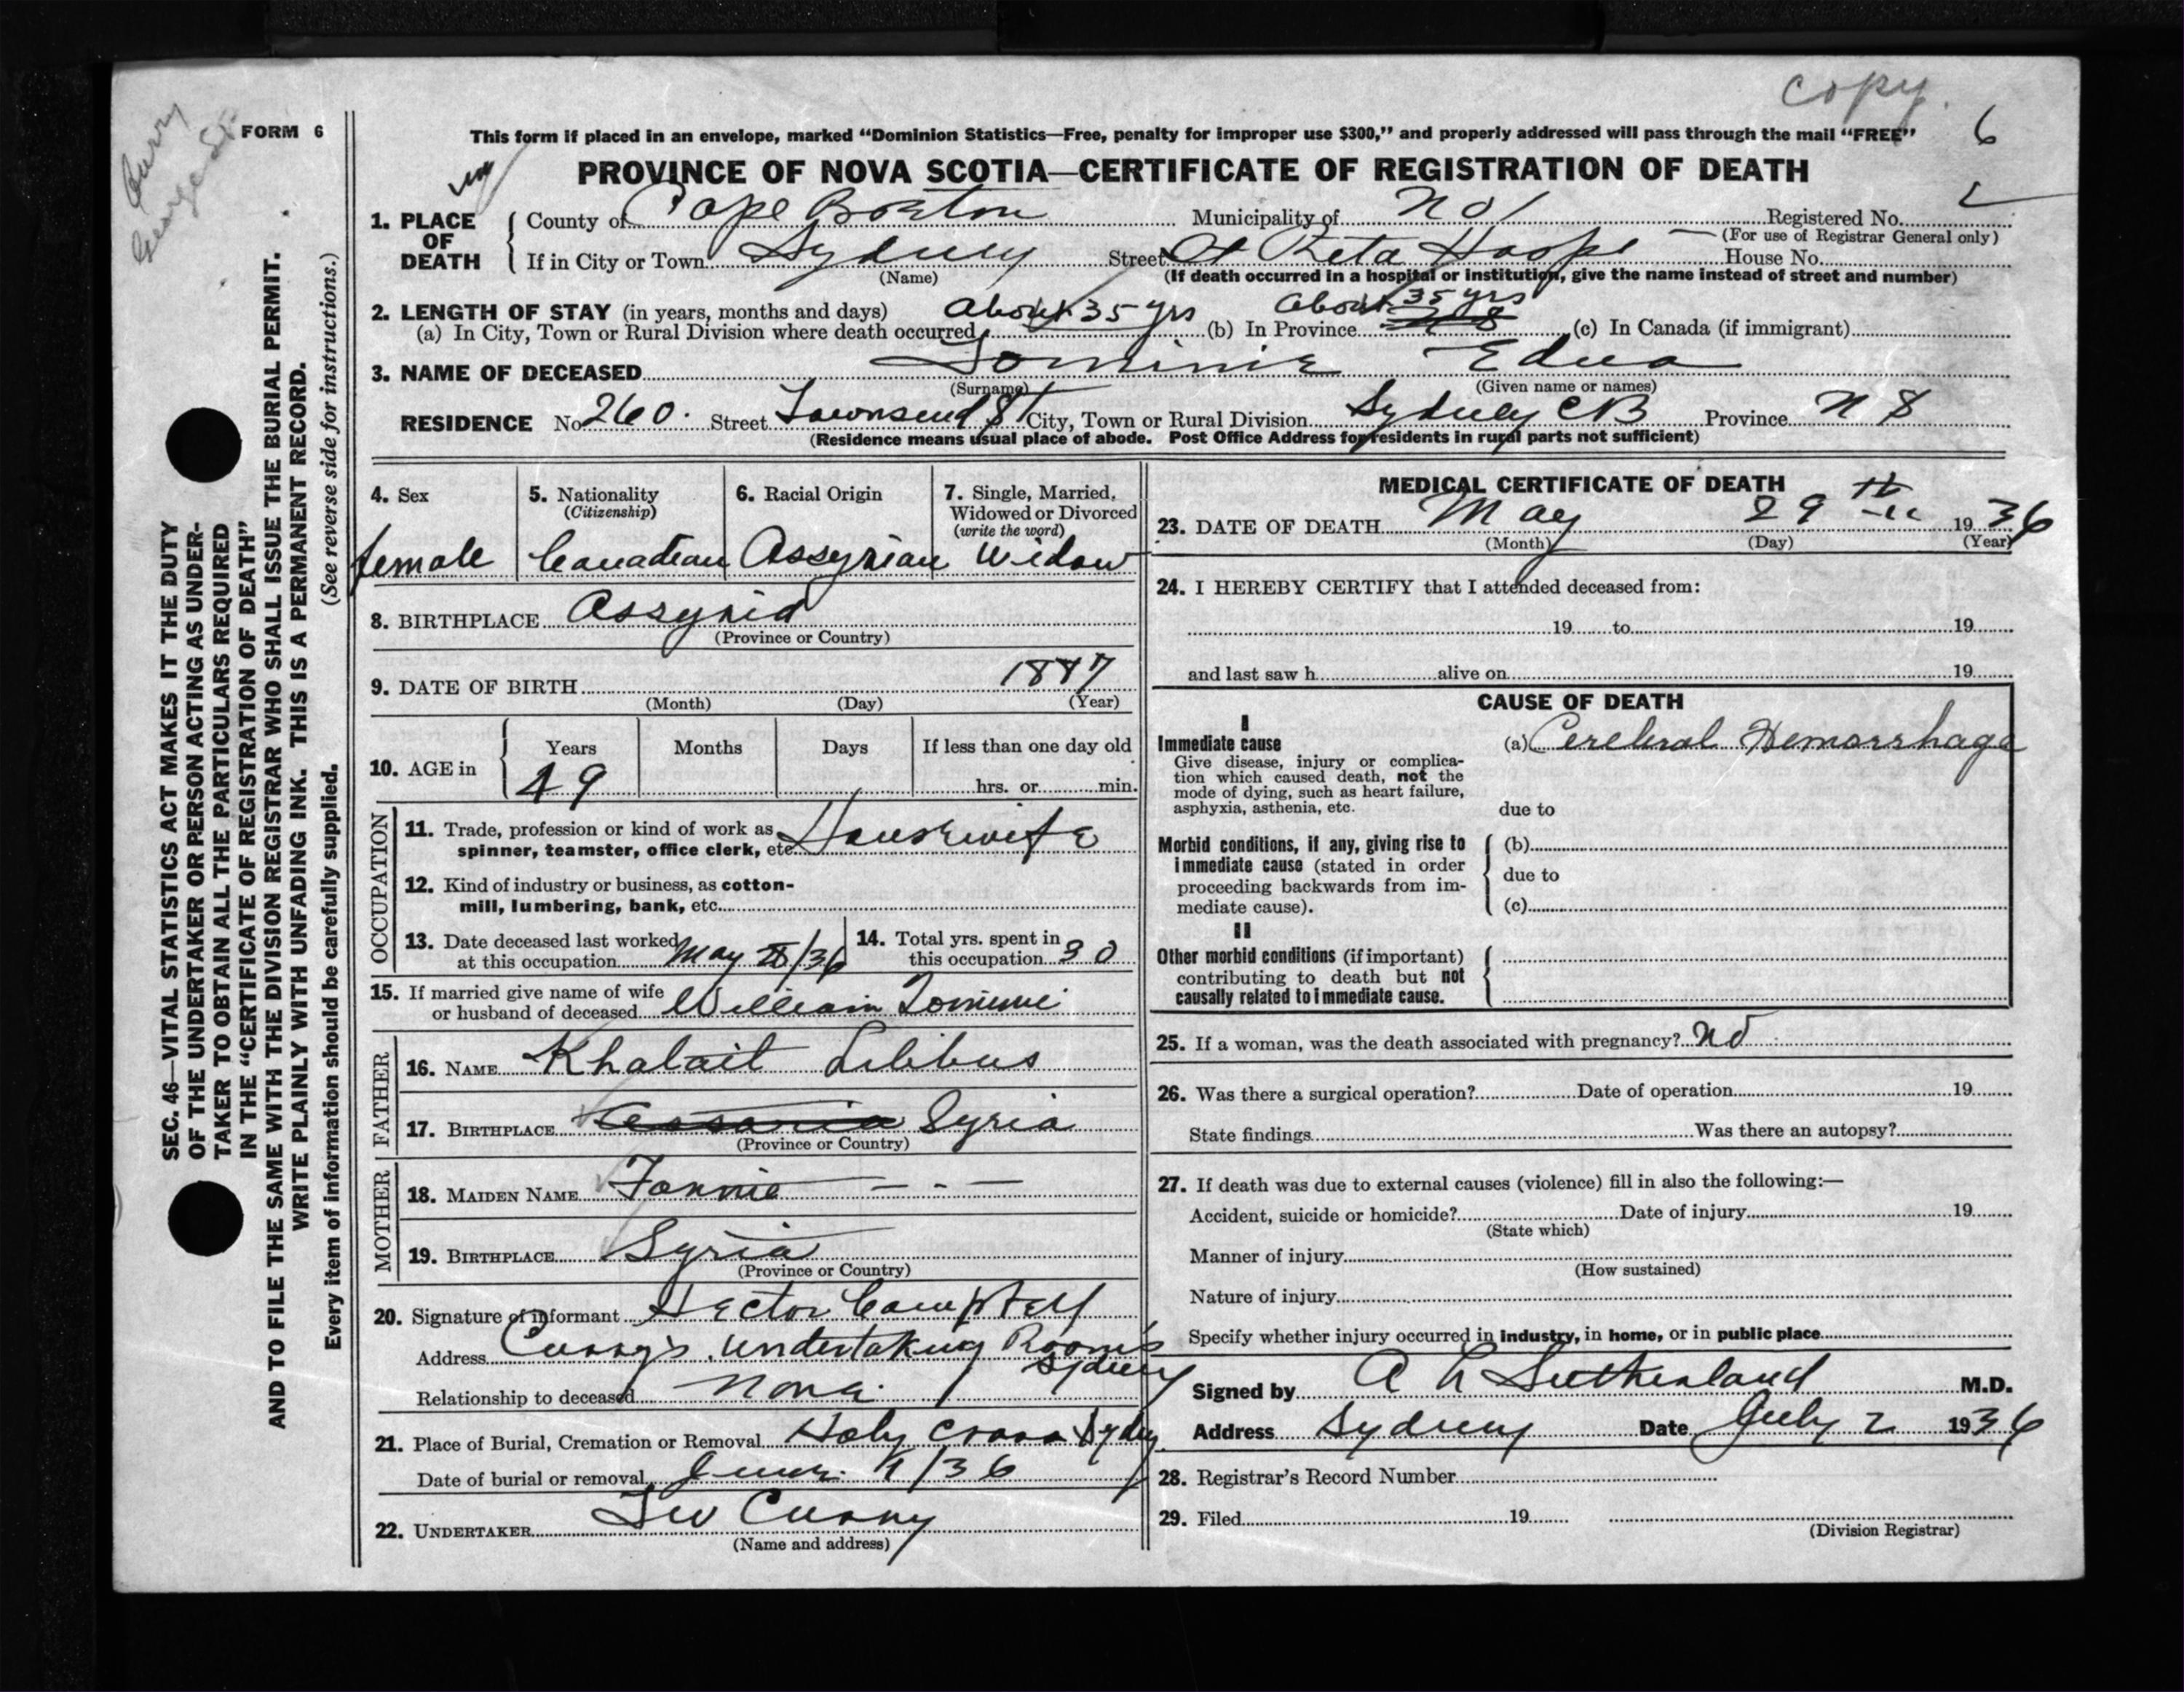 copy.
Curry
George St.
FORM 6
6
This form if placed in an envelope, marked "Dominion Statistics—Free, penalty for improper use $300," and properly addressed will pass through the mail "FREE"
PROVINCE OF NOVA SCOTIA—CERTIFICATE OF REGISTRATION OF DEATH
1. PLACE OF DEATH
County of Cape Breton Municipality of No 1 Registered No.
(For use of Registrar General only)
If in City or Town Sydney Street St Reta Hosp House No.
(Name) (If death occurred in a hospital or institution, give the name instead of street and number)
2. LENGTH OF STAY (in years, months and days)
(a) In City, Town or Rural Division where death occurred about 35 yrs (b) In Province about 35 yrs (c) In Canada (if immigrant)
3. NAME OF DECEASED Tominie Edna
(Surname) (Given name or names)
RESIDENCE No 260. Street Townsend St City, Town or Rural Division Sydney CB Province N S
(Residence means usual place of abode. Post Office Address for residents in rural parts not sufficient)
4. Sex
female
5. Nationality
(Citizenship)
Canadian
6. Racial Origin
Assyrian
7. Single, Married, Widowed or Divorced
(write the word)
Widow
8. BIRTHPLACE Assyria
(Province or Country)
9. DATE OF BIRTH 1887
(Month) (Day) (Year)
10. AGE in
Years Months Days If less than one day old
49 hrs. or min.
OCCUPATION
11. Trade, profession or kind of work as
spinner, teamster, office clerk, etc. Housewife
12. Kind of industry or business, as cotton-
mill, lumbering, bank, etc.
13. Date deceased last worked
at this occupation May /36
14. Total yrs. spent in
this occupation 30
15. If married give name of wife
or husband of deceased William Tominie
FATHER
16. NAME Khalait Lilibus
17. BIRTHPLACE Syria
(Province or Country)
MOTHER
18. MAIDEN NAME Fannie — - —
19. BIRTHPLACE Syria
(Province or Country)
20. Signature of informant Hector Campbell
Address Curry's Undertaking Rooms
Sydney
Relationship to deceased None.
21. Place of Burial, Cremation or Removal Holy Cross Sydney
Date of burial or removal June 1/36
22. UNDERTAKER Leo Curry
(Name and address)
MEDICAL CERTIFICATE OF DEATH
23. DATE OF DEATH May 29th 1936
(Month) (Day) (Year)
24. I HEREBY CERTIFY that I attended deceased from:
19 to 19
and last saw h alive on 19
CAUSE OF DEATH
I
Immediate cause
Give disease, injury or complica-
tion which caused death, not the
mode of dying, such as heart failure,
asphyxia, asthenia, etc.
(a) Cerebral Hemorrhage
due to
Morbid conditions, if any, giving rise to
immediate cause (stated in order
proceeding backwards from im-
mediate cause).
(b)
due to
(c)
II
Other morbid conditions (if important)
contributing to death but not
causally related to immediate cause.
25. If a woman, was the death associated with pregnancy? no
26. Was there a surgical operation? Date of operation 19
State findings Was there an autopsy?
27. If death was due to external causes (violence) fill in also the following:—
Accident, suicide or homicide? Date of injury 19
(State which)
Manner of injury
(How sustained)
Nature of injury
Specify whether injury occurred in industry, in home, or in public place
Signed by A R Sutherland M.D.
Address Sydney Date July 2 1936
28. Registrar's Record Number
29. Filed 19
(Division Registrar)
SEC. 46—VITAL STATISTICS ACT MAKES IT THE DUTY
OF THE UNDERTAKER OR PERSON ACTING AS UNDER-
TAKER TO OBTAIN ALL THE PARTICULARS REQUIRED
IN THE "CERTIFICATE OF REGISTRATION OF DEATH"
AND TO FILE THE SAME WITH THE DIVISION REGISTRAR WHO SHALL ISSUE THE BURIAL PERMIT.
WRITE PLAINLY WITH UNFADING INK. THIS IS A PERMANENT RECORD.
Every item of information should be carefully supplied. (See reverse side for instructions.)